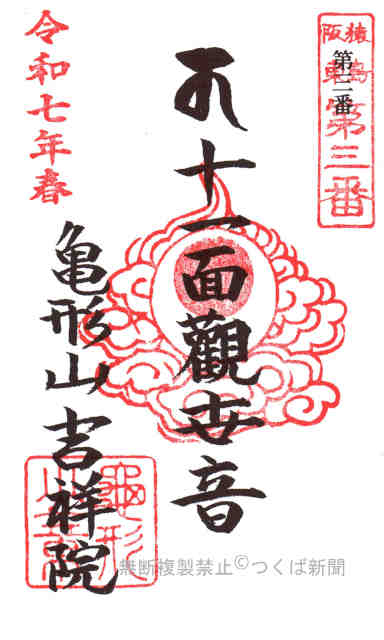 猿島
阪東
第三番
第三番
十一面觀世音
令和七年春
亀形山吉祥院
龜形
無断複製禁止©つくば新聞